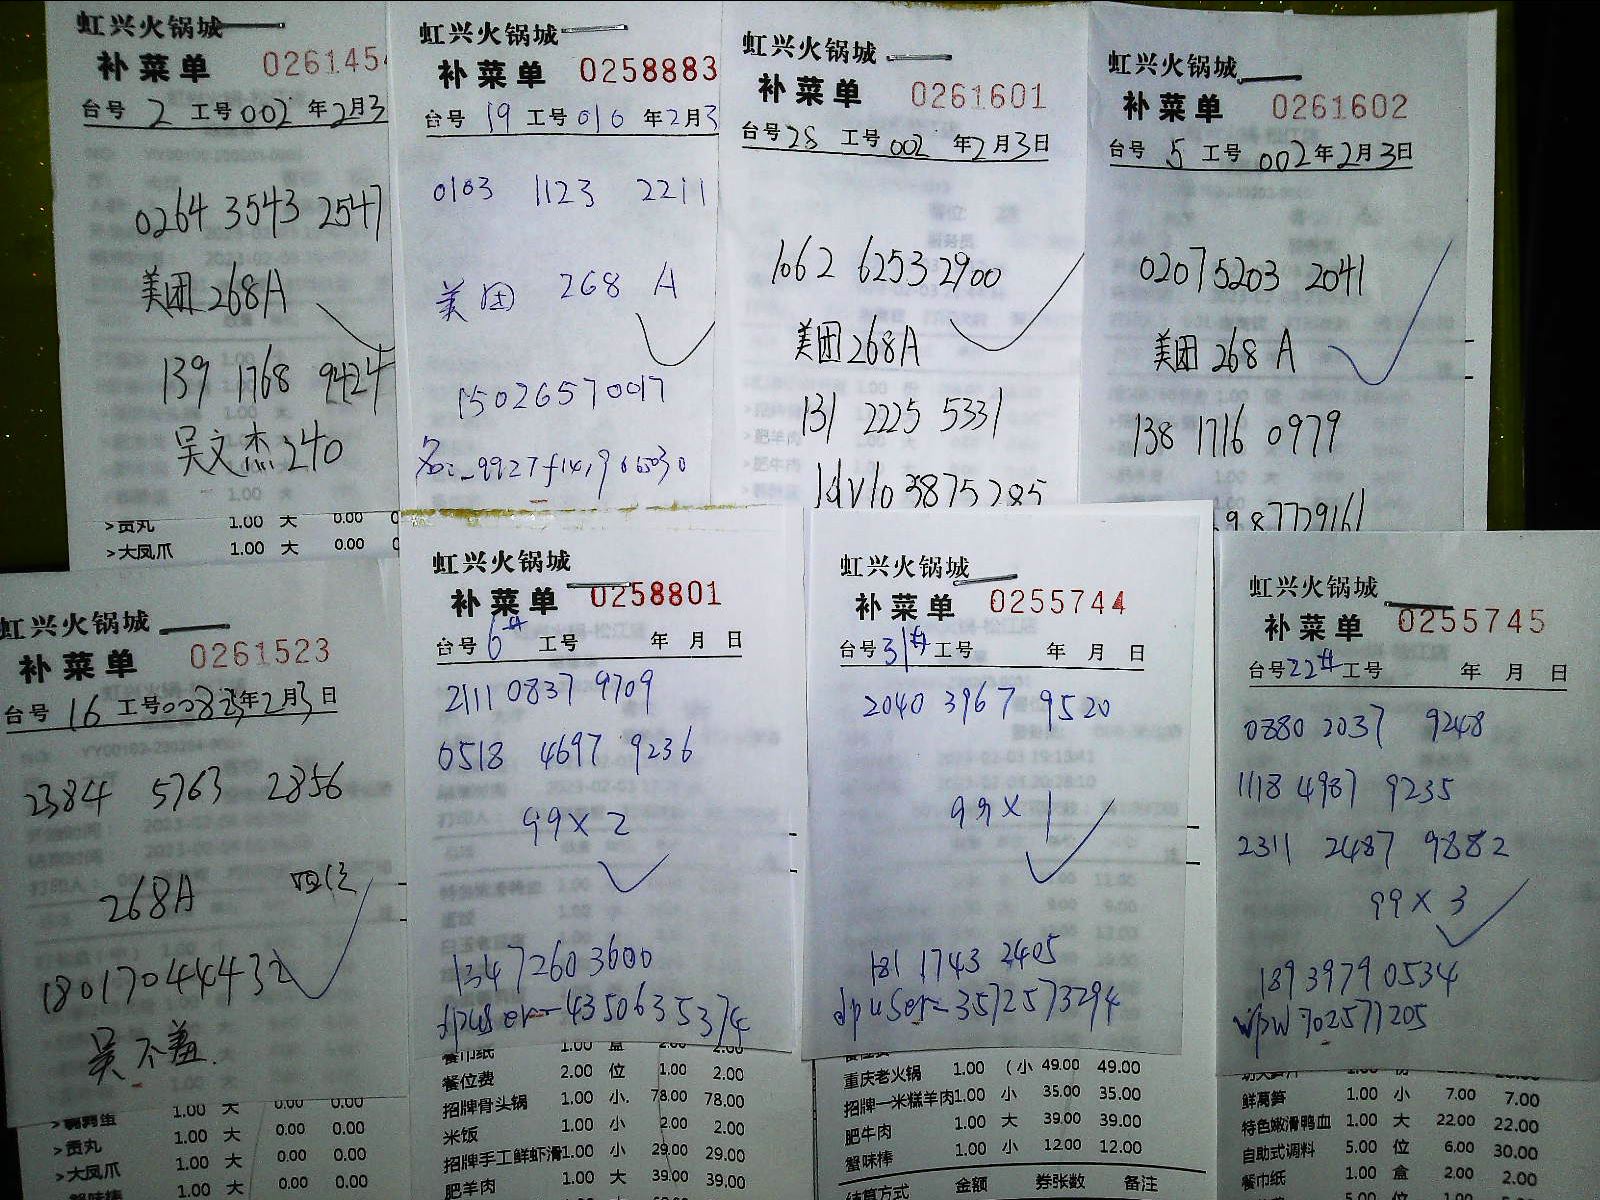 虹兴火锅城
补菜单 026145
台号 2 工号 002 年2月3
0264 3543 2547
美团268A
139 1768 9424
吴文杰240
>贡丸 1.00 大 0.00 0.00
>大凤爪 1.00 大 0.00
虹兴火锅城
补菜单 0258883
台号 19 工号 016 年2月3
0103 1123 2211
美团 268 A
15026570017
虹兴火锅城
补菜单 0261601
台号 28 工号 002 年2月3日
1062 6253 2900
美团268A
131 2225 5331
虹兴火锅城
补菜单 0261602
台号 5 工号 002年2月3日
0207 5203 2041
美团 268 A
138 1716 0979
987729161
虹兴火锅城
补菜单 0261523
台号 16 工号008 年2月3日
2384 5763 2856
268A
18017044432
吴不羞.
1.00 大 0.00 0.00
>贡丸 1.00 大 0.00 0.00
>大凤爪 1.00 大 0.00 0.00
蟹味棒 1.00 大 0.00 0.00
虹兴火锅城
补菜单 0258801
台号 6# 工号 年 月 日
2111 0837 9709
0518 4697 9236
99×2
13472603600
dpuser-4350635374
餐巾纸 1.00 盒 2.00 2.00
餐位费 2.00 位 1.00 2.00
招牌骨头锅 1.00 小. 78.00 78.00
米饭 1.00 小 2.00 2.00
招牌手工鲜虾滑1.00 小 29.00 29.00
肥羊肉 1.00 大 39.00 39.00
虹兴火锅城
补菜单 0255744
台号31# 工号 年 月 日
2040 3967 9520
99×1
181 1743 2405
dpuser-3572573294
重庆老火锅 1.00 (小 49.00 49.00
招牌一米糕羊肉1.00 小 35.00 35.00
肥牛肉 1.00 大 39.00 39.00
蟹味棒 1.00 小 12.00 12.00
结算方式 金额 券张数 备注
虹兴火锅城
补菜单 0255745
台号22# 工号 年 月 日
0880 2037 9248
1118 4987 9235
2311 2487 9882
99×3
189 3979 0534
wpw702571205
鲜莴笋 1.00 小 7.00 7.00
特色嫩滑鸭血 1.00 大 22.00 22.00
自助式调料 5.00 位 6.00 30.00
餐巾纸 1.00 盒 2.00 2.00
5.00 位 1.00 5.00